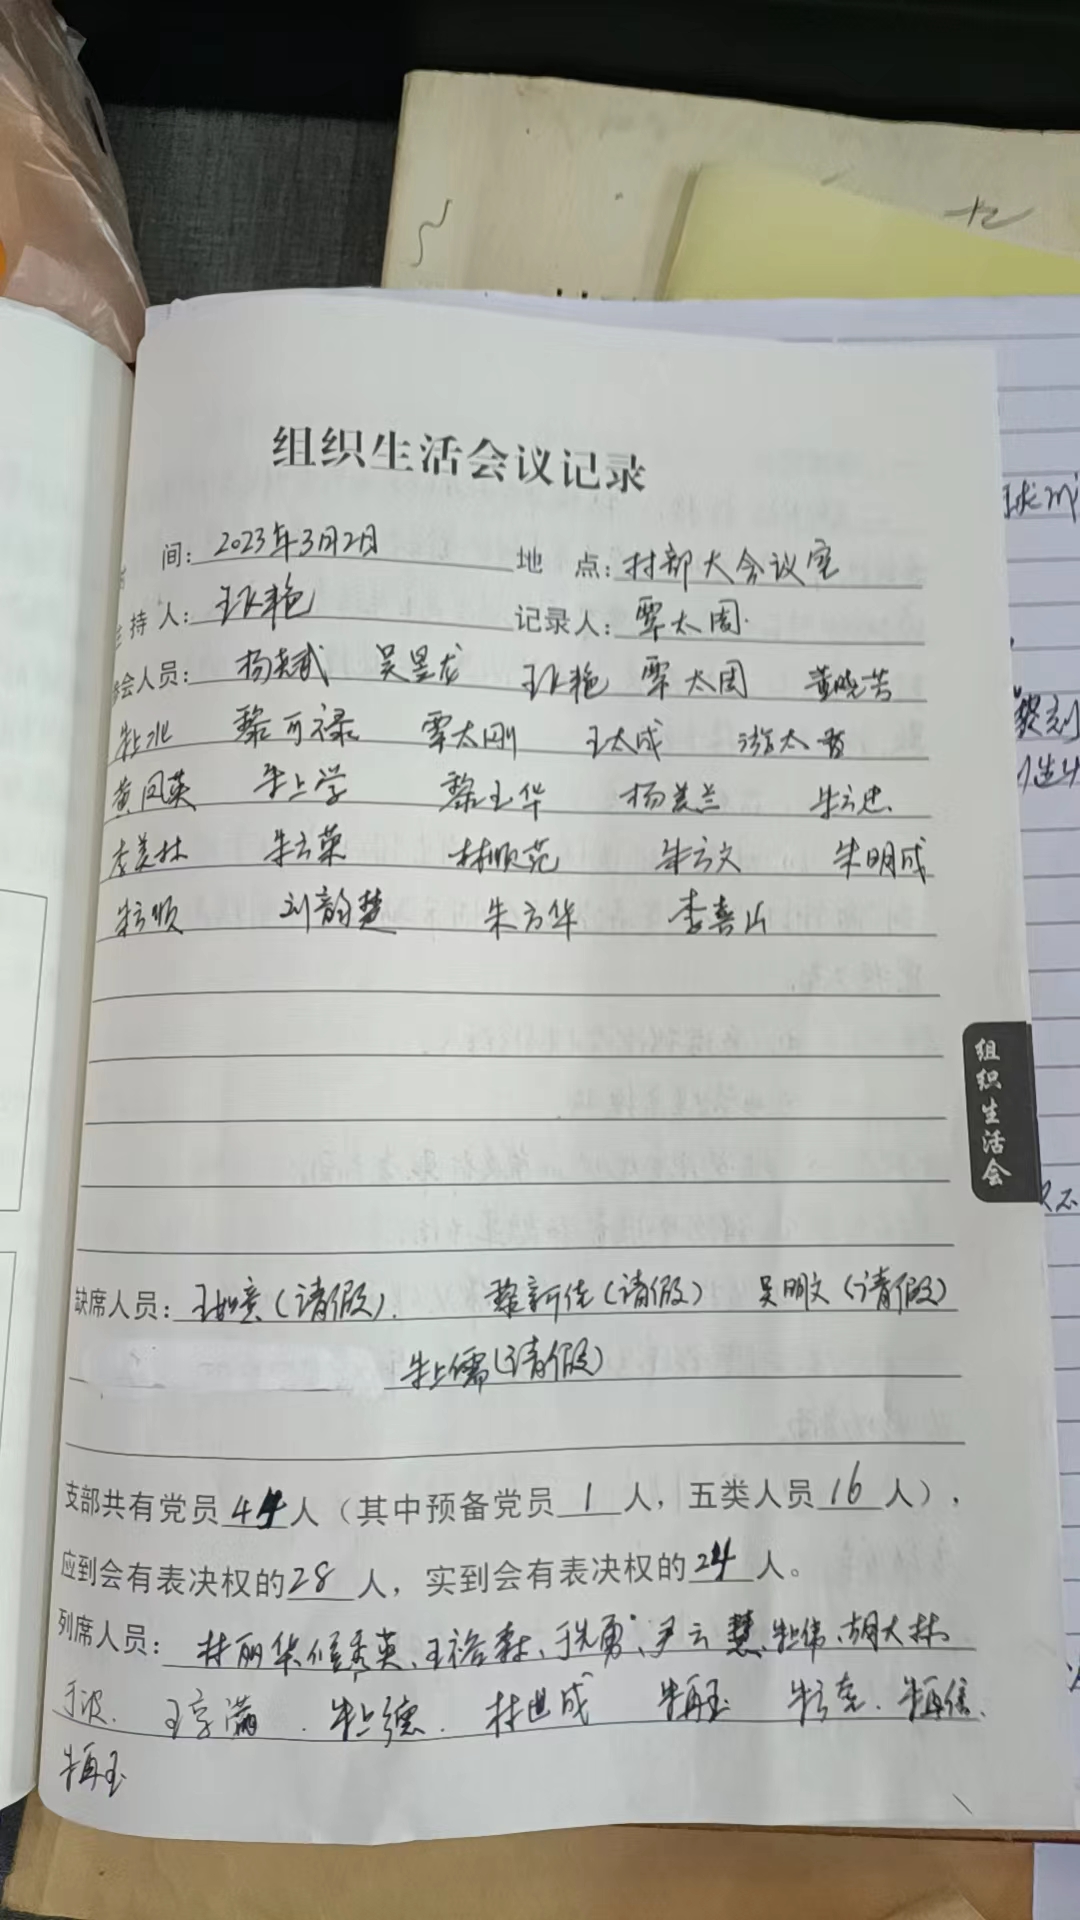 组织生活会议记录
间：2023年3月2日 地 点：村部大会议室
持人：王 艳 记录人：覃太周
会人员：杨英武 吴昱龙 王 艳 覃太周 黄晓芳
朱上兴 黎可禄 覃太刚 王太成 游太晋
黄凤英 朱上学 黎玉华 杨美兰 朱方忠
李美林 朱方荣 林顺范 朱方文 朱明成
朱方顺 刘韵慧 朱方华 李喜山
组织生活会
缺席人员：王如意（请假） 黎新佳（请假） 吴明文（请假）
朱上儒（请假）
支部共有党员44人（其中预备党员1人，五类人员16人），
应到会有表决权的28人，实到会有表决权的24人。
列席人员：林丽华、 秀英、王裕森、于先勇、尹云慧、朱上伟、胡大林
于波、王字满、朱上德、林世成 朱再玉 朱方克、朱再信、
朱再玉